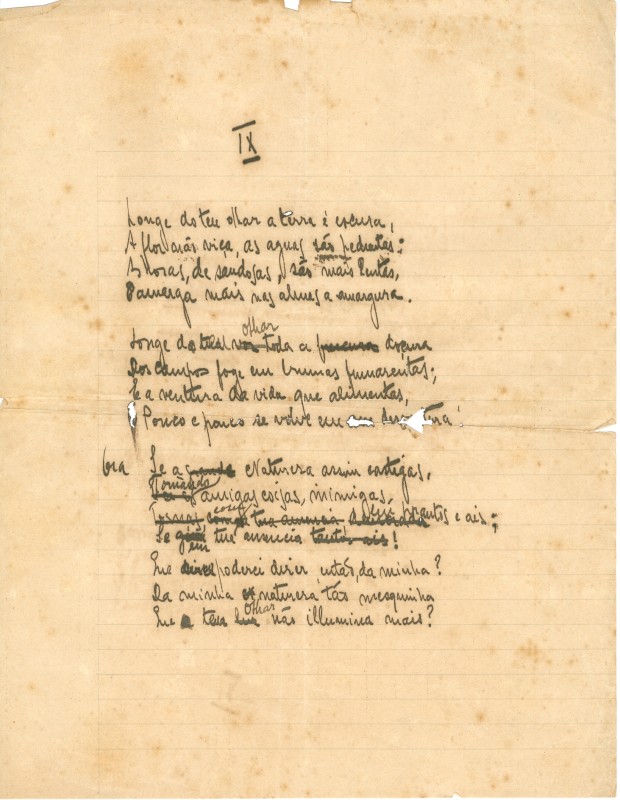 IX
Longe do teu olhar a terra é escura,
A flor não viça, as aguas são pedrentas;
As horas, de saudosas, são mais lentas,
E amarga mais nas almas a amargura.
olhar
Longe do teu toda a doçura
Dos campos foge em brumas fumarentas;
E a ventura da vida que alimentas,
Pouco e pouco se volve em
Ora Se a Natureza assim castigas,
Tornando
amigas coisas, inimigas,
prantos e ais;
Se tua ausencia tantos ais!
em
Que poderei dizer, então, da minha?
Da minha natureza tão mesquinha
olhar
Que teu não illumina mais?